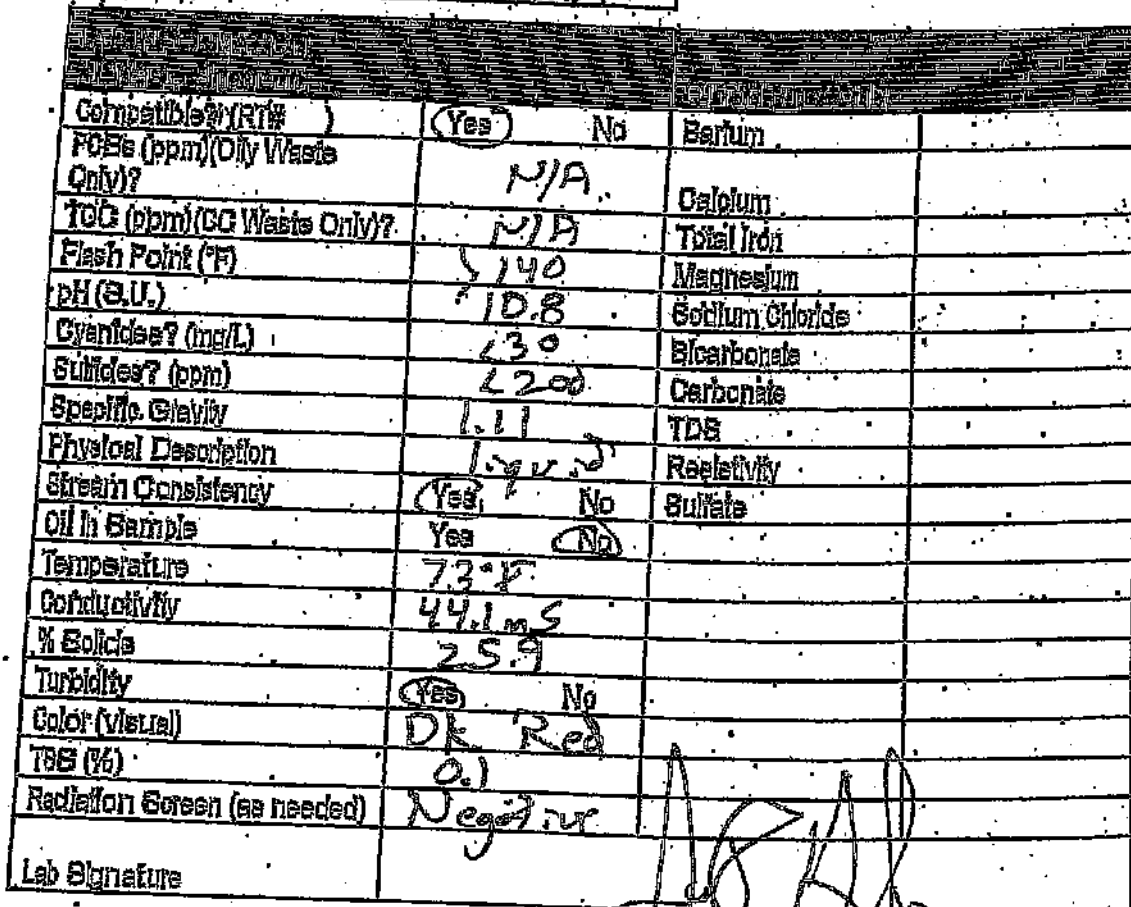 Compatible?(RT# ) Yes No Barium
PCBs (ppm)(Oily Waste
Only)? N/A. Calcium
TOC (ppm)(CC Waste Only)? N/A Total Iron
Flash Point (°F) >140 Magnesium
pH (S.U.) 10.8 Sodium Chloride
Cyanides? (mg/L) <30 Bicarbonate
Sulfides? (ppm) <200 Carbonate
Specific Gravity 1.11 TDS
Physical Description Liquid Resistivity
Stream Consistency Yes No Sulfate
Oil in Sample Yes No
Temperature 73°F
Conductivity 44.1 mS
% Solids 25.9
Turbidity Yes No
Color (visual) DK Red
TSS (%) 0.1
Radiation Screen (as needed) Negative
Lab Signature